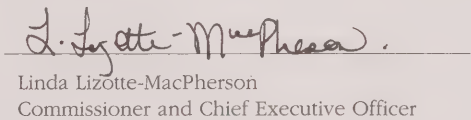 L. Lizotte-MacPherson.
Linda Lizotte-MacPherson
Commissioner and Chief Executive Officer